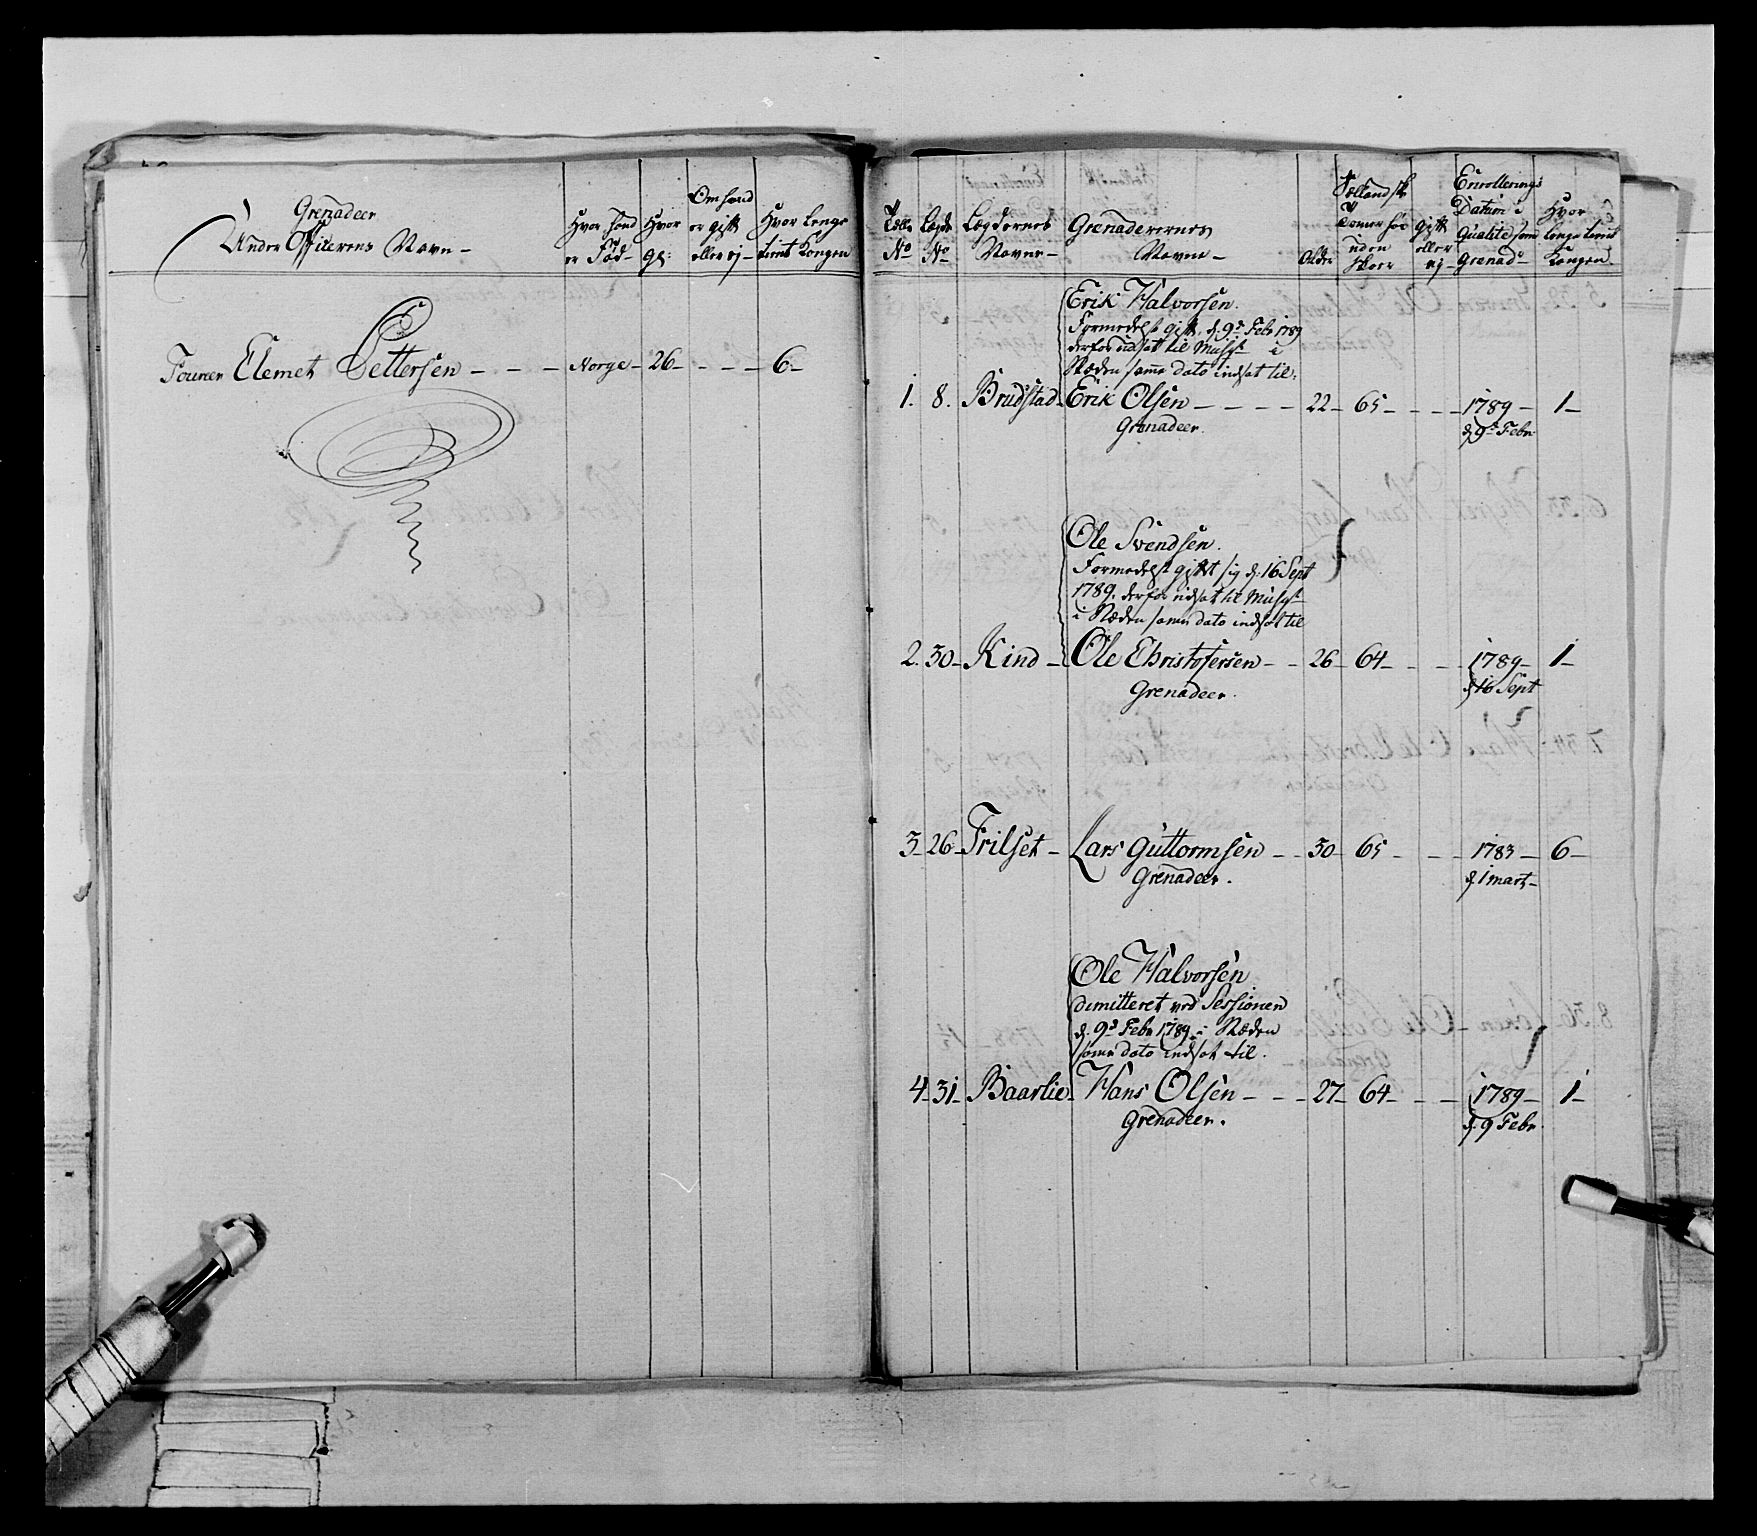 Grenadeer
Under Officerens Navn
Hvor hand er Fød
Hvor Gl:
Om hand er gift eller ej
Hvor lenge tient Kongen
Foureer Clemet Pettersen - - - Norge - 26 - - - - 6 -
No
Lægd No
Lægdernes Navne
Grenaderernes Navne
Alder
Sællandske Tomer høi uden Skoer
Gift eller ej
Enrollerings Datum i Qualite som Grenadr
Hvor lenge tient Kongen
Erik Halvorsen.
Formedelst gift, d: 9d Febr 1789
derfor udsat til Musqt i
Stæden samme dato indsat til:
1. 8. Brudstad - Erik Olsen - - - - 22 - 65 - - - 1789 - 1 -
Grenadeer. d: 9d Febr:
Ole Svendsen.
Formedelst giftet sig d: 16 Sept
1789. derfor udsat til Musqt
i Stæden samme dato indsat til
2. 30 - Kind - Ole Christofersen - - 26 - 64 - - - 1789 - 1 -
Grenadeer. d: 16 Sept
3 - 26 - Frilset - Lars Guttormsen - - 30 - 65 - - - 1783 - 6 -
Grenadeer. d: 1 mart -
Ole Halvorsen
dimitteret ved Sessionen
d: 9d Febr 1789. i Stæden
samme dato indsat til.
4 - 31 - Baarlie - Hans Olsen - - - 27 - 64 - - - 1789 - 1 -
Grenadeer. d: 9 Febr